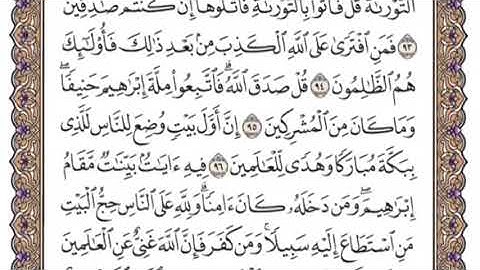 التَّوْرَىٰةُ قُلْ فَأْتُوا۟ بِالتَّوْرَىٰةِ فَاتْلُوهَآ إِن كُنتُمْ صَٰدِقِينَ
٩٣ فَمَنِ ٱفْتَرَىٰ عَلَى ٱللَّهِ ٱلْكَذِبَ مِنۢ بَعْدِ ذَٰلِكَ فَأُو۟لَٰٓئِكَ
هُمُ ٱلظَّٰلِمُونَ ٩٤ قُلْ صَدَقَ ٱللَّهُ ۗ فَٱتَّبِعُوا۟ مِلَّةَ إِبْرَٰهِيمَ حَنِيفًا ۖ
وَمَا كَانَ مِنَ ٱلْمُشْرِكِينَ ٩٥ إِنَّ أَوَّلَ بَيْتٍ وُضِعَ لِلنَّاسِ لَلَّذِى
بِبَكَّةَ مُبَارَكًا وَهُدًى لِّلْعَٰلَمِينَ ٩٦ فِيهِ ءَايَٰتٌۢ بَيِّنَٰتٌ مَّقَامُ
إِبْرَٰهِيمَ ۖ وَمَن دَخَلَهُۥ كَانَ ءَامِنًا ۗ وَلِلَّهِ عَلَى ٱلنَّاسِ حِجُّ ٱلْبَيْتِ
مَنِ ٱسْتَطَاعَ إِلَيْهِ سَبِيلًا ۚ وَمَن كَفَرَ فَإِنَّ ٱللَّهَ غَنِىٌّ عَنِ ٱلْعَٰلَمِينَ